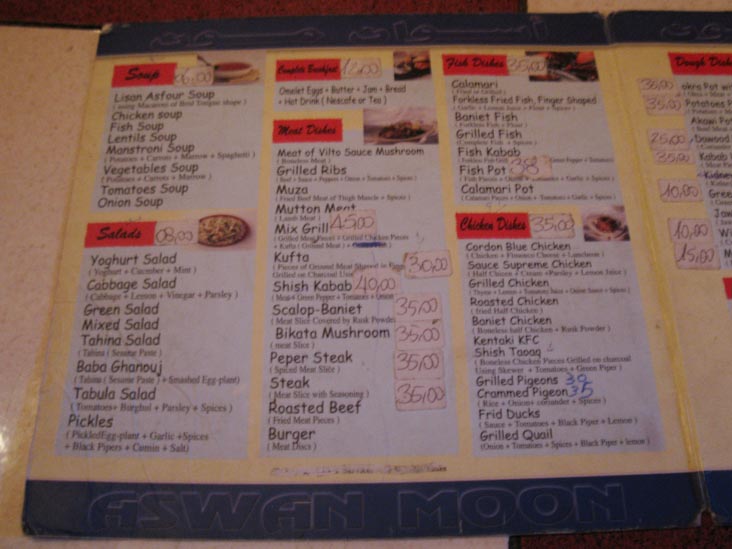 Soup 06,00
Lisan Asfour Soup
( using Macaroni of Bird Tongue shape )
Chicken soup
Fish Soup
Lentils Soup
Manstroni Soup
( Potatoes + Carrots + Marrow + Spaghetti )
Vegetables Soup
( Potatoes + Carrots + Marrow )
Tomatoes Soup
Onion Soup
Salads 08,00
Yoghurt Salad
( Yoghurt + Cucumber + Mint )
Cabbage Salad
( Cabbage + Lemon + Vinegar + Parsley )
Green Salad
Mixed Salad
Tahina Salad
Tahina ( Sesame Paste )
Baba Ghanouj
Tahina ( Sesame Paste ) + Smashed Egg-plant)
Tabula Salad
( Tomatoes+ Burghul + Parsley + Spices )
Pickles
( PickledEgg-plant + Garlic +Spices
+ Black Pipers + Cumin + Salt)
Complete Breakfast 12,00
Omelet Eggs + Butter + Jam + Bread
+ Hot Drink ( Nescafe or Tea )
Meat Dishes
Meat of Vilto Sauce Mushroom
( Boneless Meat )
Grilled Ribs
( Beef + Sauce + Peppers + Onion + Tomato + Spices )
Muza
( Fried Beef Meat of Thigh Muscle + Spices )
Mutton Meat
( Lamb Meat )
Mix Grill 45,00
( Grilled Meat Pieces + Grilled Chicken Pieces
+ Kufta ( Ground Meat ) +
Kufta 30,00
( Pieces of Ground Meat Shaped in
Grilled on Charcoal
Shish Kabab 40,00
( Meat+ Green Pepper + Tomatoes + Onion
Scalop-Baniet 35,00
( Meat Slice Covered by Rusk Powder
Bikata Mushroom 35,00
(meat Slice )
Peper Steak 35,00
( Spiced Meat Slice )
Steak 35,00
( Meat Slice with Seasoning )
Roasted Beef
( Fried Meat Pieces )
Burger
( Meat Discs )
Fish Dishes 35,00
Calamari
( Fried or Grilled )
Forkless Fried Fish, Finger Shaped
( Garlic + Lemon Juice + Flour + Spices )
Baniet Fish
( Forkless Fish + Flour )
Grilled Fish
(Complete Fish + Spices )
Fish Kabab
Green Pepper + Tomatoes
Fish Pot 38
( Fish Pieces + Onion + Tomatoes + Garlic + Spices )
Calamari Pot
( Calamari Pieces + Onion + Tomatoes + Garlic + Spices )
Chicken Dishes 35,00
Cordon Blue Chicken
( Chicken + Floience Cheese + Luncheon )
Sauce Supreme Chicken
( Half Chicen + Cream +Parsley + Lemon Juice )
Grilled Chicken
( Thyme + Lemon + Tomatoes Juice + Onion Sauce + Spices )
Roasted Chicken
( fried Half Chicken )
Baniet Chicken
( Boneless half Chicken + Rusk Powder )
Kentaki KFC
Shish Taoaq
( Boneless Chicken Pieces Grilled on charcoal
Using Skewer + Tomatoes + Green Piper )
Grilled Pigeons 30
Crammed Pigeon 35
( Rice + Onion+ coriander + Spices )
Frid Ducks
( Sauce + Tomatoes + Black Piper + Lemon )
Grilled Quail
(Onion + Tomatoes + Spices + Black Piper + lemon )
Dough
okra Pot
35,00 Potatoes
Akawi
25,00 Dawood
35,00 Kabab
10,00 Green
10,00
15,00 Meat
ASWAN MOON